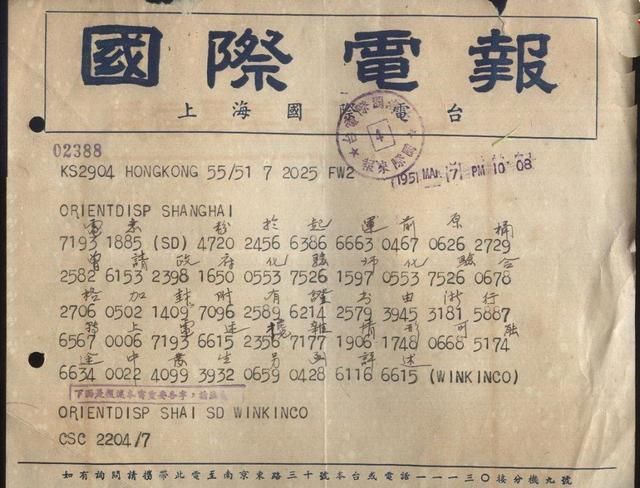 國際電報
上海國際電台
4
02388
KS2904 HONGKONG 55/51 7 2025 FW2
1951 MAR (7) PM 10 08
ORIENTDISP SHANGHAI
電悉 粉於起運前原桶
7193 1885 (SD) 4720 2456 6386 6663 0467 0626 2729
曾請政府化驗師化驗合
2582 6153 2398 1650 0553 7526 1597 0553 7526 0678
格加封附有證書由行
2706 0502 1409 7096 2589 6214 2579 3945 3181 5887
上電述攙雜情形可能
6567 0006 7193 6615 2356 7177 1906 1748 0668 5174
途中發生另函詳述
6634 0022 4099 3932 0659 0428 6116 6615 (WINKINCO)
下面是
本電重要各字，請
ORIENTDISP SHAI SD WINKINCO
CSC 2204/7
如有詢問請攜帶此電至南京東路三十號本台或電話一一一三〇接分機九號